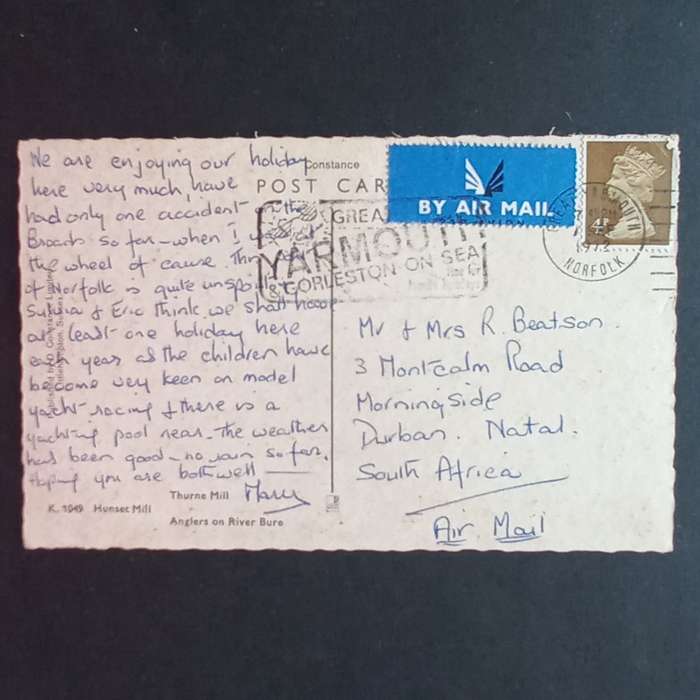 We are enjoying our holiday
here very much, have
had only one accident on the
Broads so far - when I was at
the wheel of cause. This
of Norfolk is quite unspoilt
& Eric think we shall have
at least one holiday here
each year as the children have
become very keen on model
yacht-racing & there is a
yachting pool near. The weather
has been good - no rain so far.
Hoping you are both well
Mary
Constance
POST CAR
BY AIR MAIL
GREA
YARMOUTH
& GORLESTON ON SEA
4P
1973
NORFOLK
Mr & Mrs R. Beatson.
3 Montcalm Road
Morningside
Durban. Natal.
South Africa
Air Mail
Published by
Thurne Mill
K. 1049 Hunset Mill
Anglers on River Bure